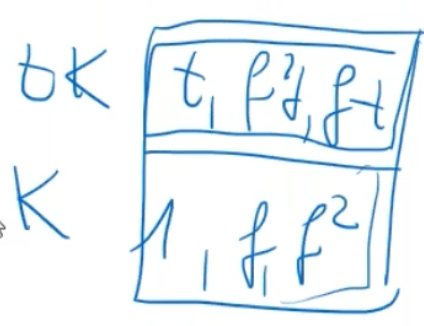 tK t, f²t, ft
K 1, f, f²